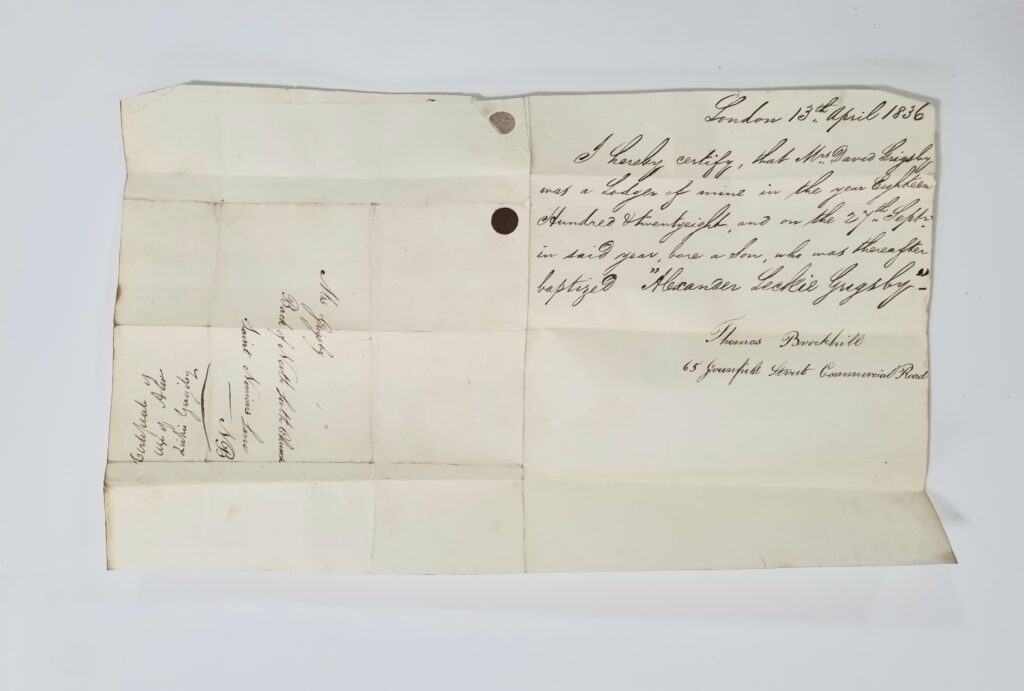 London 13th. April 1836
I hereby certify, that Mrs. David Grigsby
was a Lodger of mine in the year Eighteen
Hundred & twentyeight, and on the 27th. Septr.
in said year, bore a Son, who was thereafter
baptized "Alexander Leckie Grigsby" -
Thomas Brockhill
65 Greenfield Street Commercial Road
Mrs Grigsby
Back of North Church
Saint Ninians Lane
NB
Certificate of
age of Alexr
Leckie Grigsby